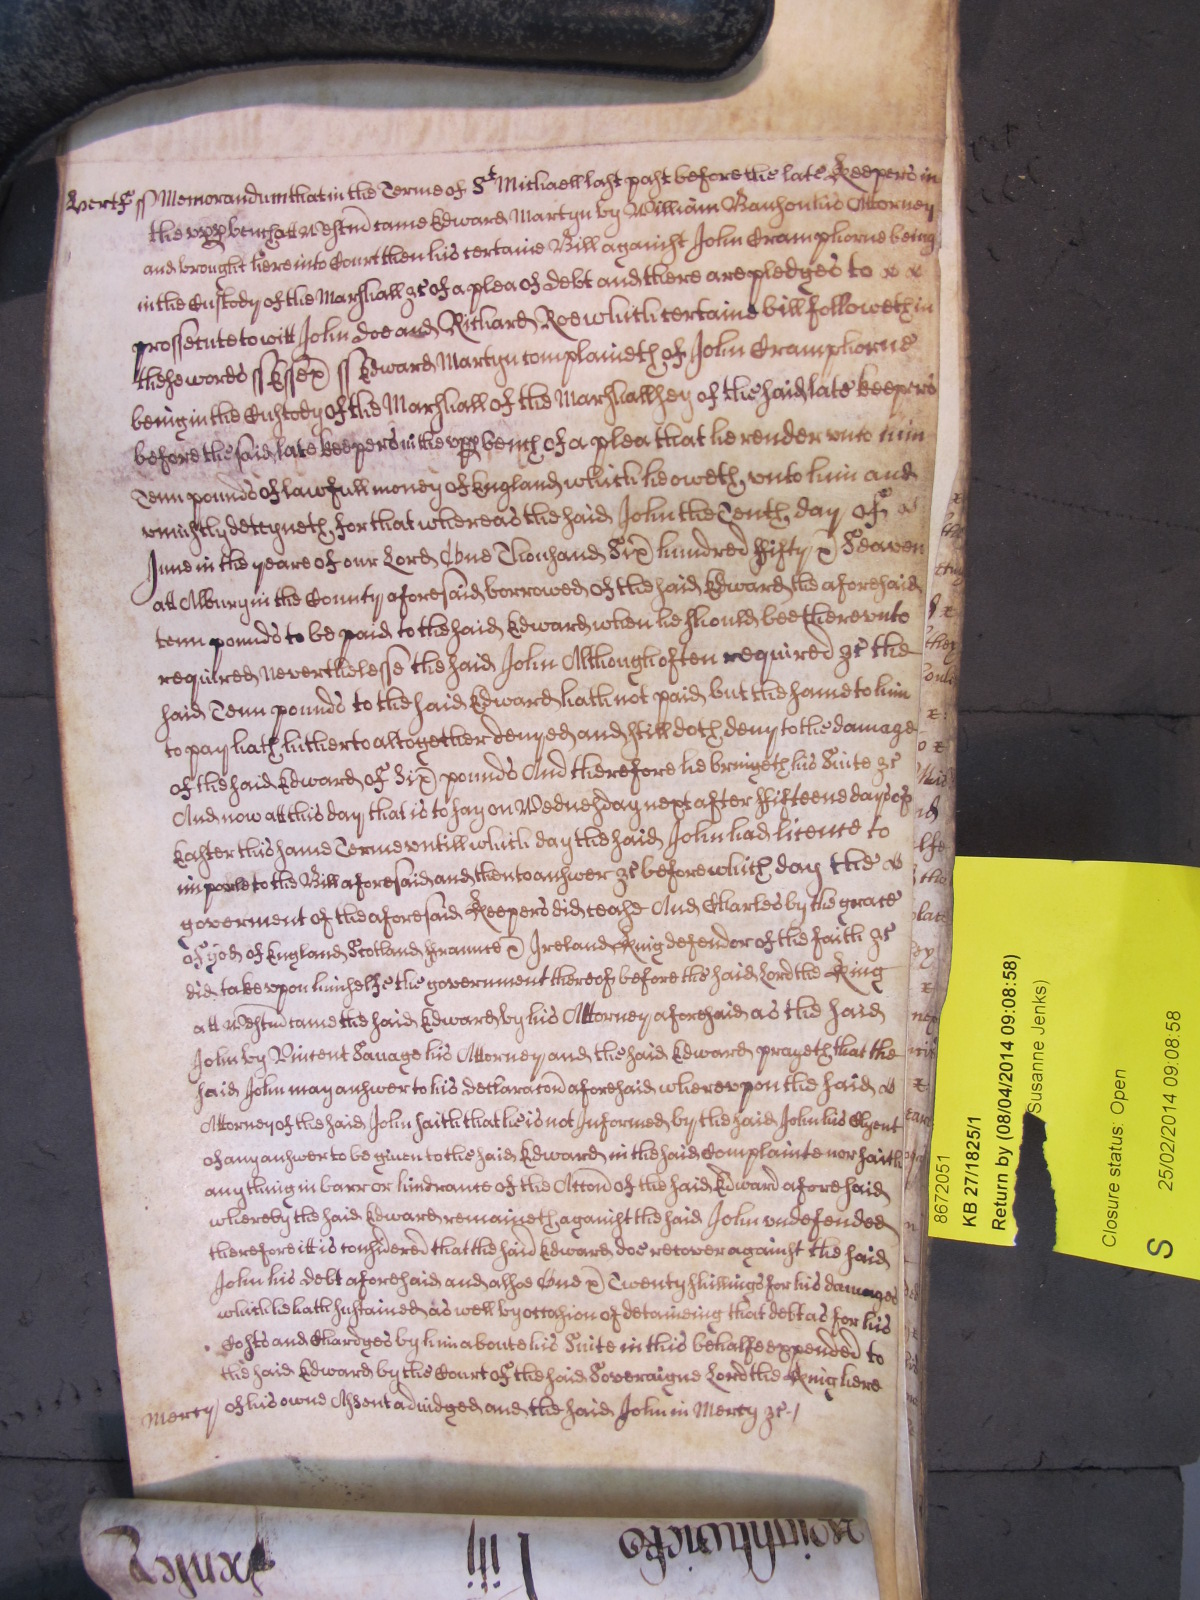 Hertf ss Memorandum that in the Terme of St Michaell last past before the late Keepers in
the upp bench att Westm came Edward Martyn by William Banson his Attorney
and brought here into Court then his certaine Bill against John Cramphorne being
in the Custody of the Marshall &c of a plea of debt and there are pledges to
prossecute to witt John Doe and Richard Roe which certaine bill followeth in
these words ss Essex ss Edward Martyn complaineth of John Cramphorne
being in the Custody of the Marshall of the Marshallsey of the said late keepers
before the said late keepers in the upp bench of a plea that he render unto him
Tenn pounds of lawfull money of England which he oweth unto him and
uniustly deteyneth for that whereas the said John the Tenth day of
June in the yeare of our Lord One Thousand Six hundred fifty & Seaven
att Albury in the County aforesaid borrowed of the said Edward the aforesaid
tenn pounds to be paid to the said Edward when he should bee thereunto
required Neverthelesse the said John Although often required &c the
said Tenn pounds to the said Edward hath not paid but the same to him
to pay hath hitherto altogether denyed and still doth deny to the damage
of the said Edward of Six pounds And therefore he bringeth his Suite &c
And now att this day that is to say on Wednesday next after fifteene days of
Easter this same Terme untill which day the said John had licence to
imparle to the Bill aforesaid and then to answer &c before which day the
goverment of the aforesaid Keepers did cease And Charles by the grace
of god of England Scotland france & Ireland King defendor of the faith &c
did take upon himselfe the government thereof before the said Lord the King
att Westm came the said Edward by his Attorney aforesaid as the said
John by Vincent Savage his Attorney and the said Edward prayeth that the
said John may answer to his declaracon aforesaid whereupon the said
Attorney of the said John saith that he is not Informed by the said John his Clyent
of any answer to be given to the said Edward in the said Complainte nor saith
any thing in barr or hindrance of the Accon of the said Edward aforesaid
whereby the said Edward remaineth against the said John undefended
therefore itt is considered that the said Edward doe recover against the said
John his debt aforesaid and alsoe One & Twenty shillings for his damages
which he hath sustained as well by occasion of detaineing that debt as for his
Costs and Chardges by him aboute his Suite in this behalfe expended to
the said Edward by the Court of the said Soveraigne Lord the King here
Mercy of his owne Assent adiudged and the said John in Mercy &c
8672051
KB 27/1825/1
Return by (08/04/2014 09:08:58)
Susanne Jenks)
Closure status: Open
25/02/2014 09:08:58
S